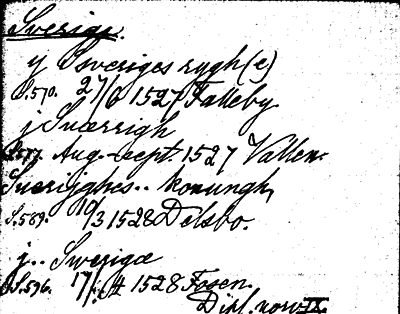 Sverige.
y Sveriges rygh(e)
S.570. 27/6 1527 Falleby
j Suerrigh
S.577. Aug.-sept. 1527 Vallen.
Suerighes.. konungh,
S.589. 10/3 1528 Delsbo.
j.. Swerigæ
S.596. 17/4 1528 Fosen.
Dipl. norv. IX.